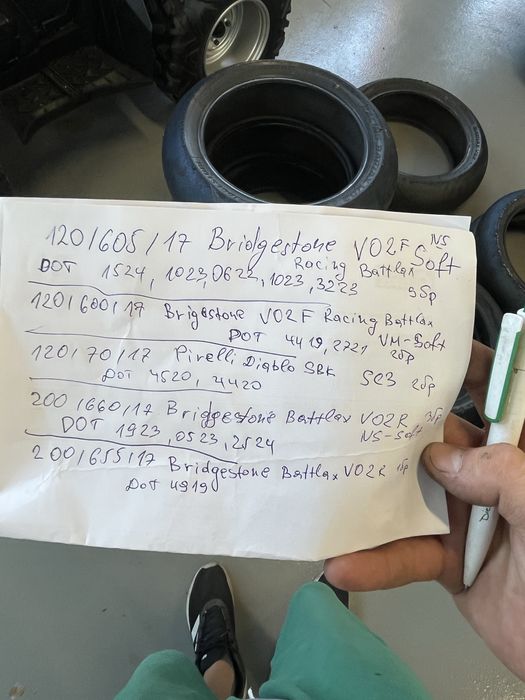 120/605/17 Bridgestone V02F NS Soft
Racing Battlax
DOT 1524, 1023, 0622, 1023, 3223 5бр
120/600/17 Brigestone V02F Racing Battlax
DOT 4419, 2721 VM-Soft 2бр
120/70/17 Pirelli Diablo SBK SC3 2бр
DOT 4520, 4420
200/660/17 Bridgestone Battlax V02R 3бр
DOT 1923, 0523, 2524 NS-Soft
200/655/17 Bridgestone Battlax V02R 1бр
DOT 4919